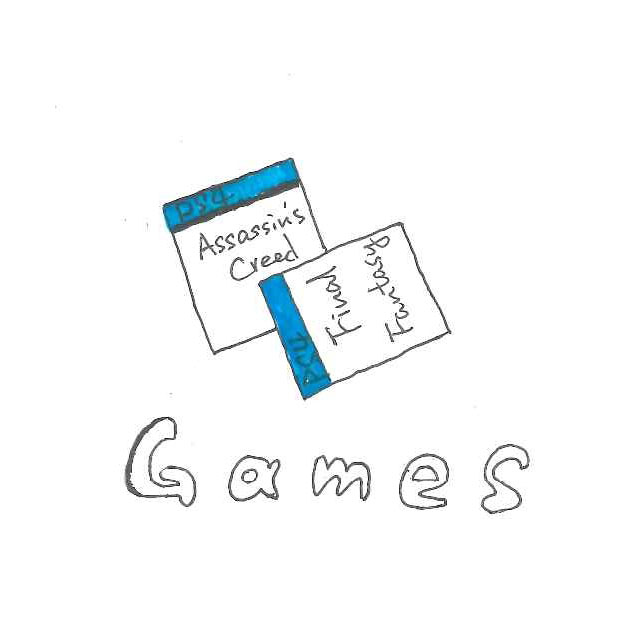 PS4
Assassin's
Creed
PS4
Final
Fantasy
Games